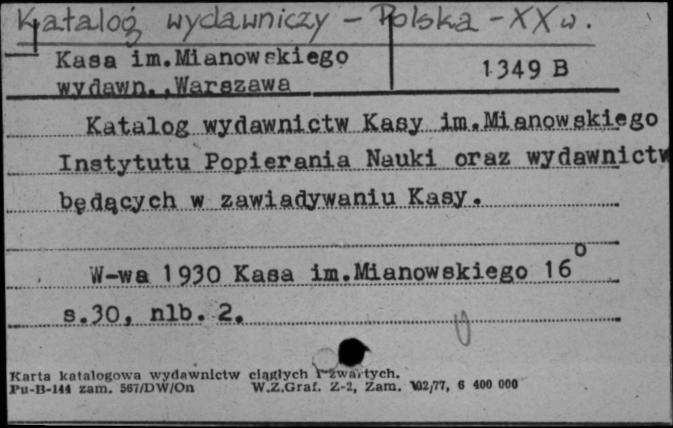 Katalog wydawniczy - Polska - XX w.
Kasa im.Mianowskiego
wydawn.,Warszawa
1349 B
Katalog wydawnictw Kasy im.Mianowskiego
Instytutu Popierania Nauki oraz wydawnictw
będących w zawiadywaniu Kasy.
W-wa 1930 Kasa im.Mianowskiego 16°
s.30, nlb. 2.
Karta katalogowa wydawnictw ciągłych i zwartych.
Pu-B-144 zam. 567/DW/On W.Z.Graf. Z-2, Zam. 102/77, 6 400 000